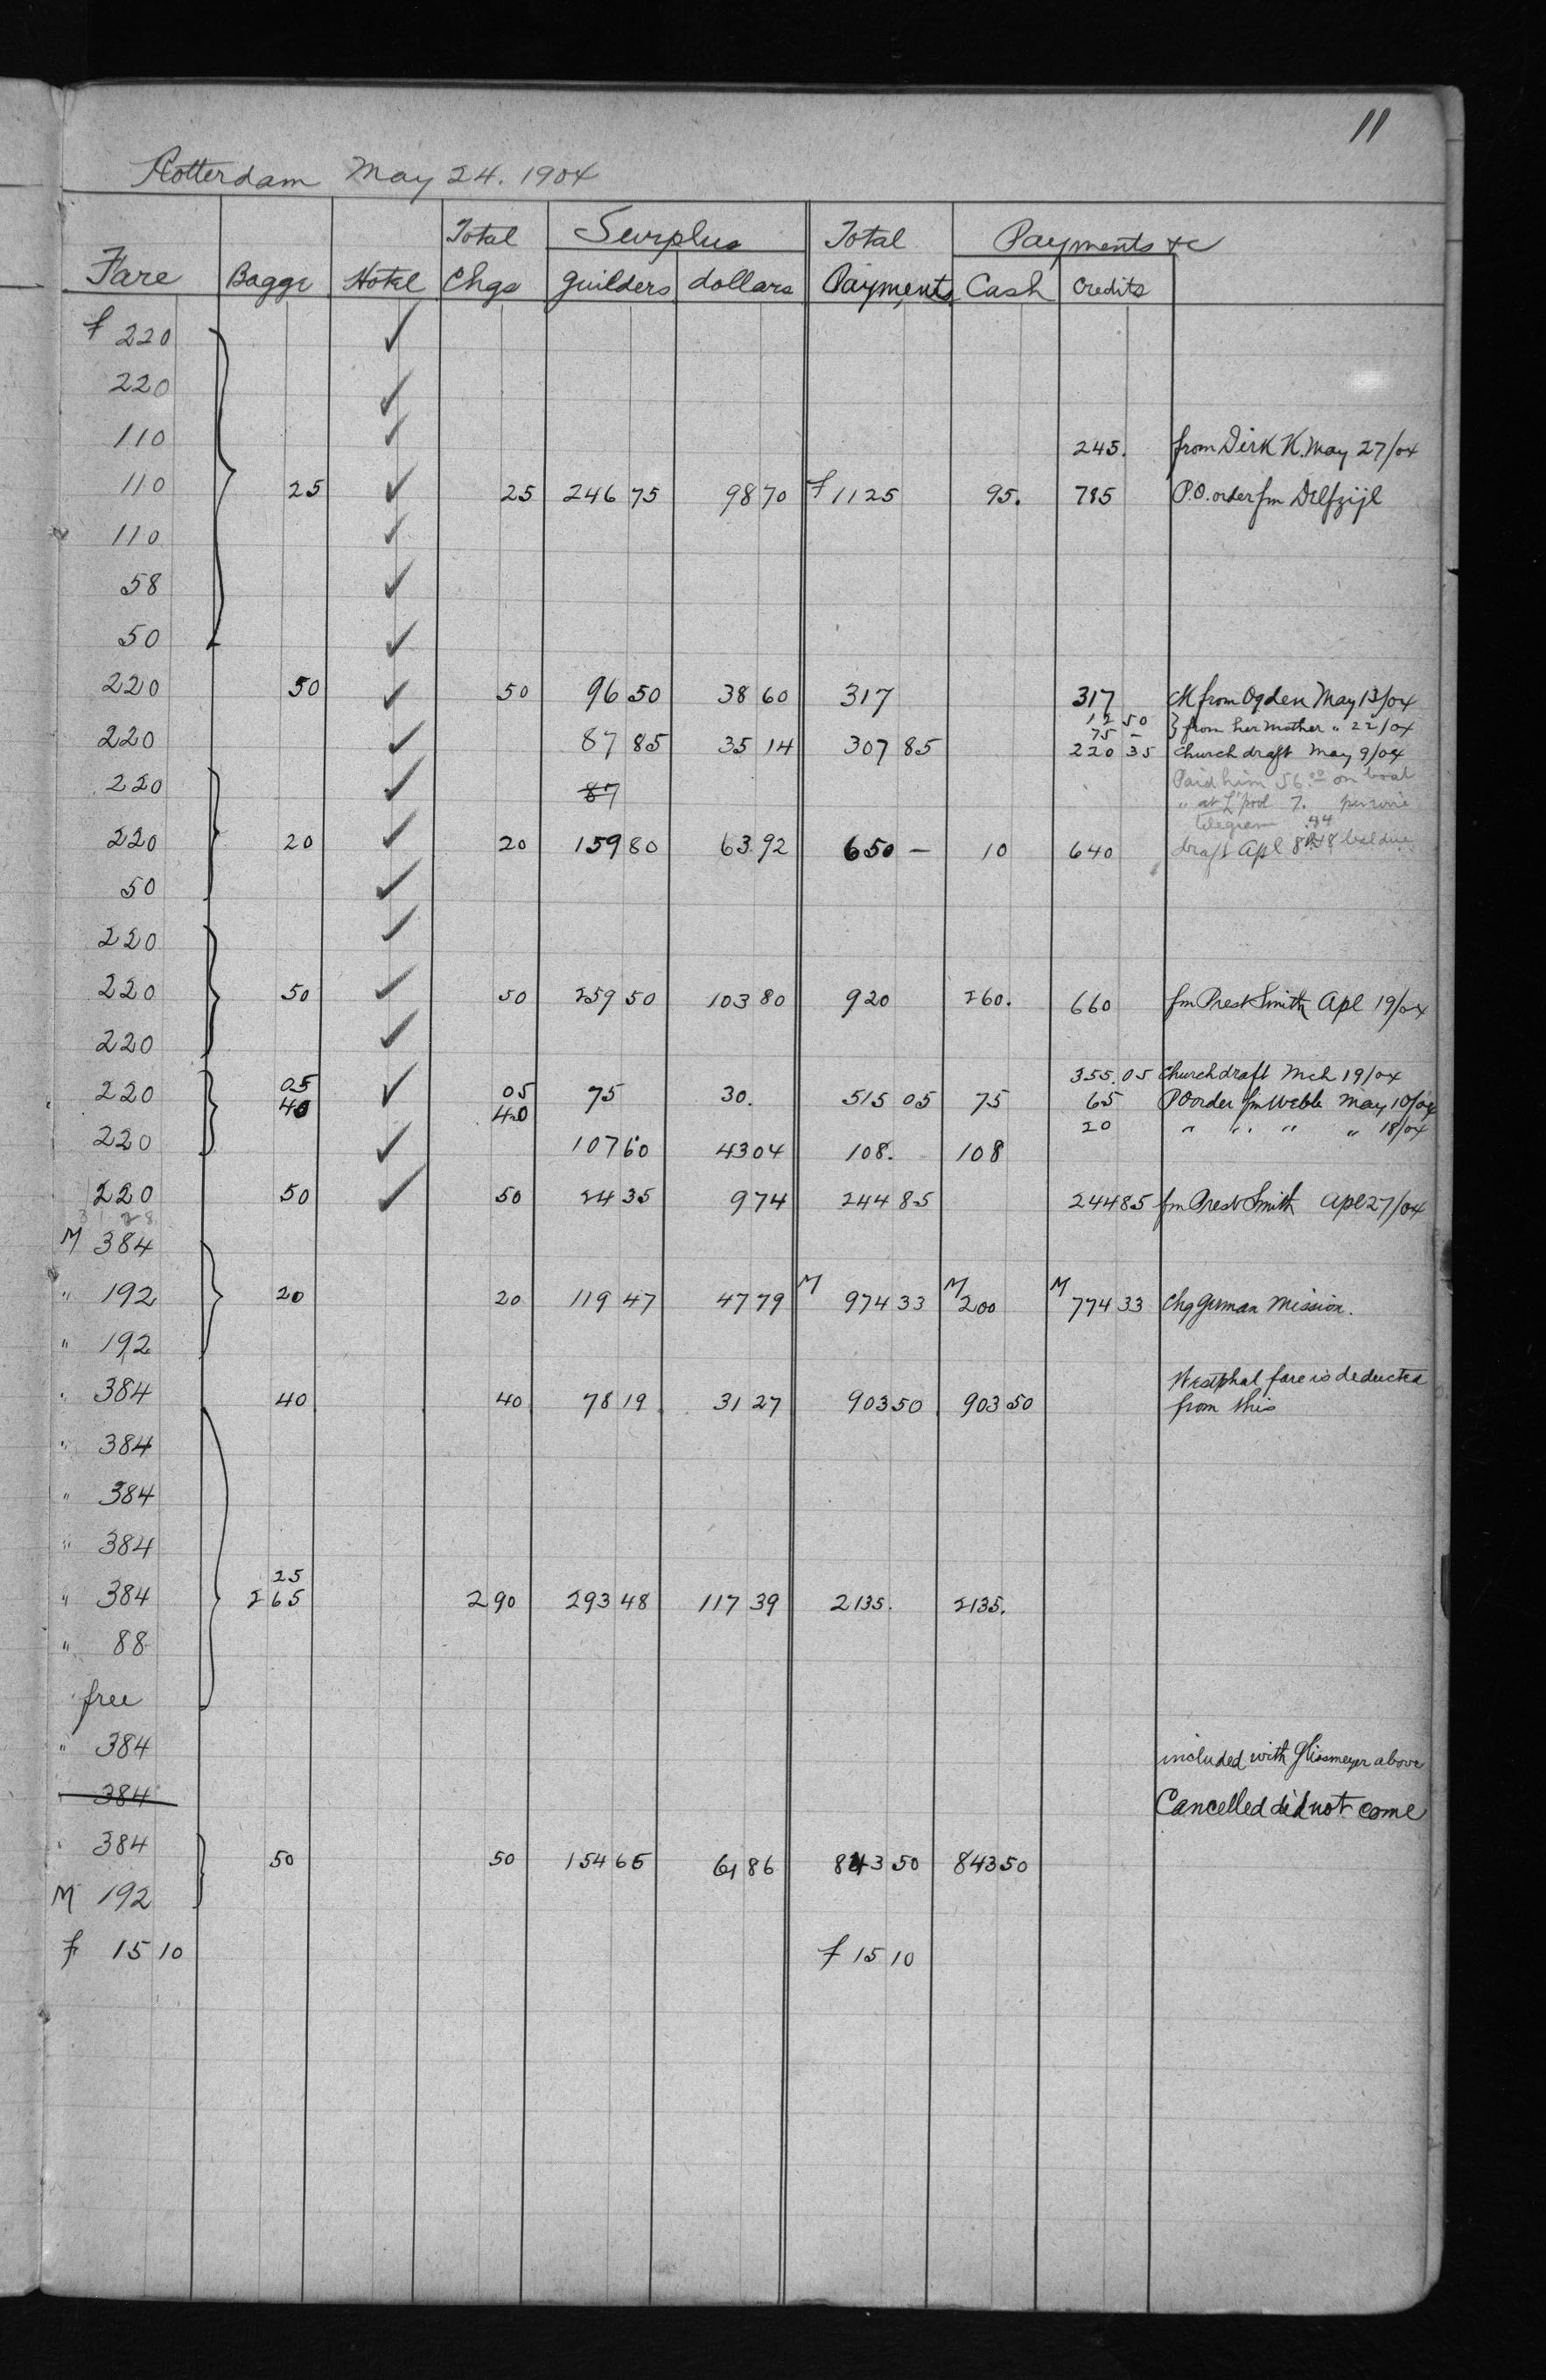 11
Rotterdam May 24. 1904
Total Surplus Total Payments &c
Fare Bagge Hotel Chgs guilders dollars Payments Cash Credits
f 220 ✓
220 ✓
110 ✓ 245. from Dirk K. May 27/04
110 25 ✓ 25 246 75 98 70 f 1125 95. 785 P.O. order fm Delfzijl
110 ✓
58 ✓
50 ✓
220 50 ✓ 50 96 50 38 60 317 317 ck from Ogden May 13/04
12 50
75 - } from her mother " 22/04
220 ✓ 87 85 35 14 307 85 220 35 Church draft May 9/04
220 ✓ 87 Paid him 56.00 on boat
" at L'pool 7. per wire
telegram .44
220 20 ✓ 20 159 80 63 92 650 — 10 640 draft Apl 8 bal due
50 ✓
220 ✓
220 50 ✓ 50 259 50 103 80 920 260. 660 fm Prest Smith Apl 19/04
220 ✓
355.05 Church draft Mch 19/04
220 05 40 ✓ 05 40 75 30. 515 05 75 65 PO order fm Webb May 10/04
20 " " " " 18/04
220 ✓ 107 60 43 04 108. 108
220 50 ✓ 50 24 35 9 74 244 85 244 85 fm Prest Smith Apl 27/04
M 384
" 192 20 20 119 47 47 79 M 974 33 M 200 M 774 33 Chg German Mission.
" 192
" 384 40 40 78 19 31 27 903 50 903 50 Westphal fare is deducted
from this
" 384
" 384
" 384
25
" 384 265 290 293 48 117 39 2135. 2135.
" 88
free
" 384 included with Glissmeyer above
" 384 Cancelled did not come
" 384 50 50 154 65 61 86 843 50 843 50
M 192
f 15 10 f 15 10